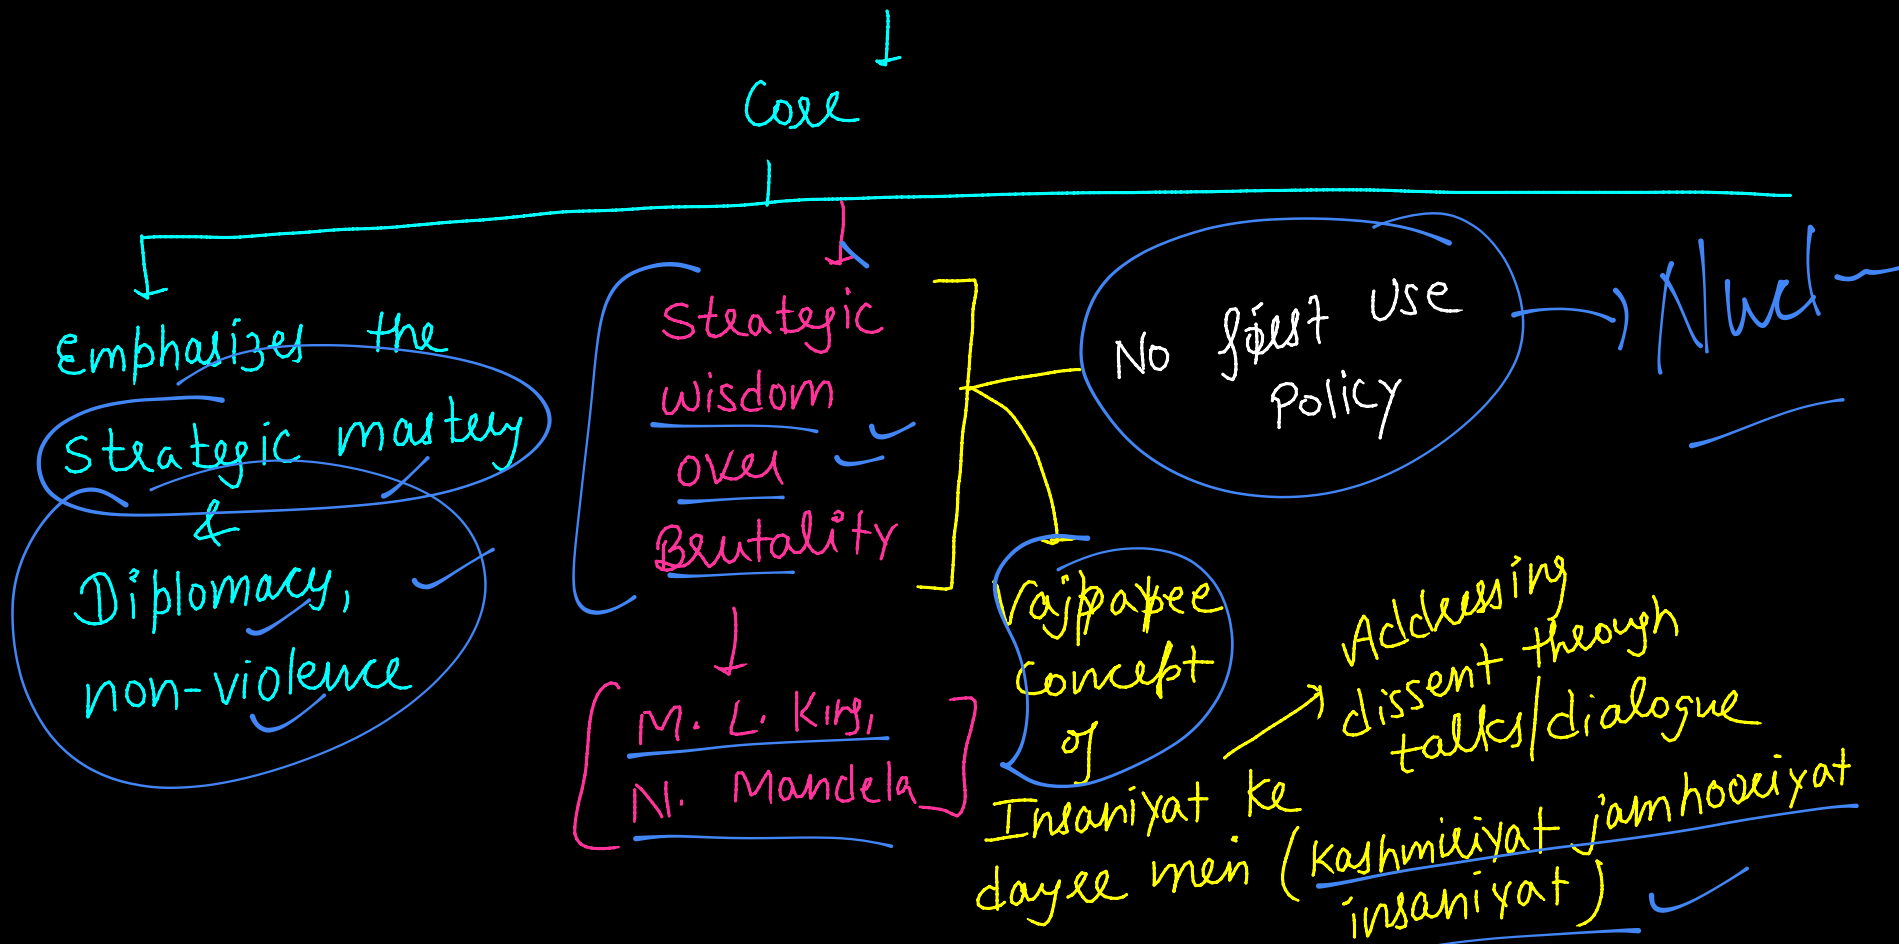 Core
Emphasizes the
Strategic mastery
&
Diplomacy,
non-violence
Strategic
wisdom
over
Brutality
M. L. King,
N. Mandela
No first use
Policy
Nucl
Vajpayee
concept
of
Insaniyat ke
dayre mein (Kashmiriyat jamhooriyat
insaniyat)
Addressing
dissent through
talks/dialogue